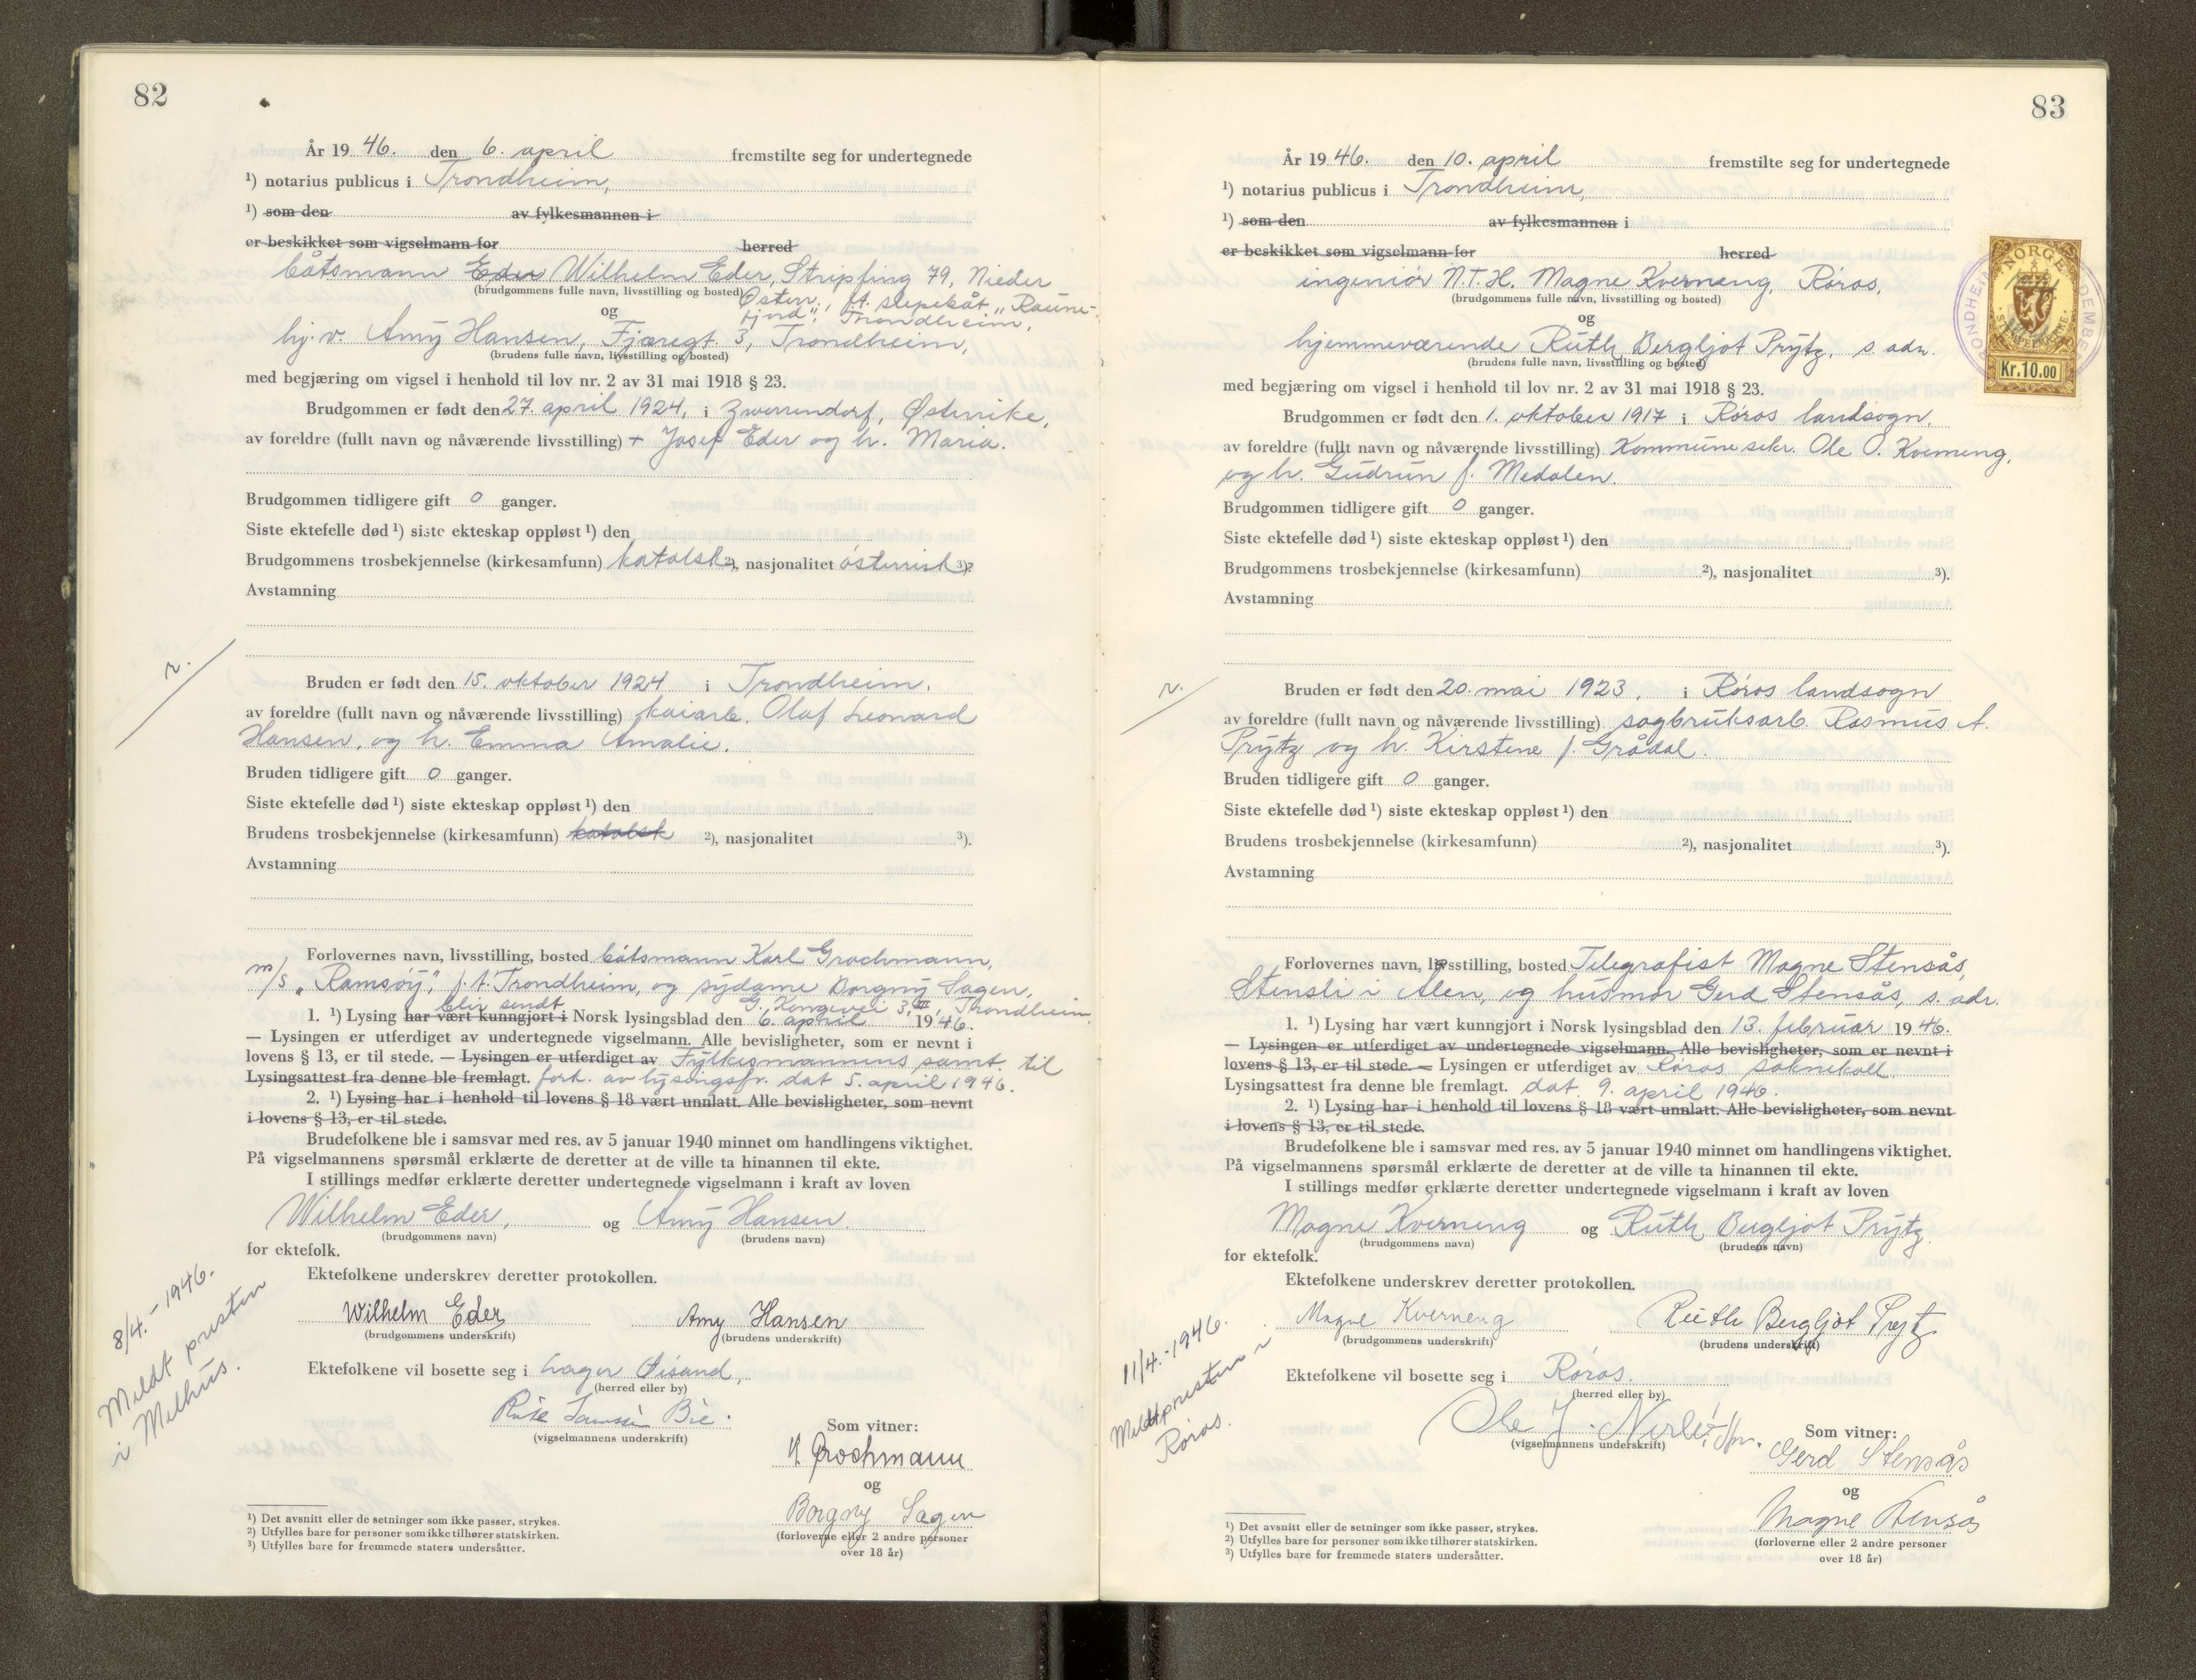 82
År 19 46. den 6. april fremstilte seg for undertegnede
¹) notarius publicus i Trondheim,
¹) som den av fylkesmannen i
er beskikket som vigselmann for herred
båtsmann Eder Wilhelm Eder, Stripfing 79, Nieder
(brudgommens fulle navn, livsstilling og bosted)
Østerr., f.t. slepebåt „Raune-
og
fjord", Trondheim,
hj. v. Amy Hansen, Fjæregt. 3, Trondheim,
(brudens fulle navn, livsstilling og bosted)
med begjæring om vigsel i henhold til lov nr. 2 av 31 mai 1918 § 23.
Brudgommen er født den 27. april 1924, i Zwerrendorf, Østerrike,
av foreldre (fullt navn og nåværende livsstilling) + Josef Eder og h. Maria.
Brudgommen tidligere gift 0 ganger.
Siste ektefelle død ¹) siste ekteskap oppløst ¹) den
Brudgommens trosbekjennelse (kirkesamfunn) katolsk ²), nasjonalitet østerrisk ³).
Avstamning
r.
Bruden er født den 15. oktober 1924 i Trondheim.
av foreldre (fullt navn og nåværende livsstilling) kaiarb. Olaf Leonard
Hansen, og h. Emma Amalie.
Bruden tidligere gift 0 ganger.
Siste ektefelle død ¹) siste ekteskap oppløst ¹) den
Brudens trosbekjennelse (kirkesamfunn) katolsk ²), nasjonalitet ³).
Avstamning
Forlovernes navn, livsstilling, bosted båtsmann Karl Grochmann,
m/s „Ramsøy", f.t. Trondheim, og sydame Borgny Sagen,
blir sendt G. Kongevei 3, III, Trondheim
1. ¹) Lysing har vært kunngjort i Norsk lysingsblad den 6. april 1946.
— Lysingen er utferdiget av undertegnede vigselmann. Alle bevisligheter, som er nevnt i
lovens § 13, er til stede. — Lysingen er utferdiget av Fylkesmannens samt. til
Lysingsattest fra denne ble fremlagt. fork. av lysingsfr. dat 5. april 1946.
2. ¹) Lysing har i henhold til lovens § 18 vært unnlatt. Alle bevisligheter, som nevnt
i lovens § 13, er til stede.
Brudefolkene ble i samsvar med res. av 5 januar 1940 minnet om handlingens viktighet.
På vigselmannens spørsmål erklærte de deretter at de ville ta hinannen til ekte.
I stillings medfør erklærte deretter undertegnede vigselmann i kraft av loven
Wilhelm Eder, og Amy Hansen.
(brudgommens navn) (brudens navn)
for ektefolk.
Ektefolkene underskrev deretter protokollen.
Wilhelm Eder Amy Hansen
(brudgommens underskrift) (brudens underskrift)
8/4.-1946.
Meldt presten
i Melhus.
Ektefolkene vil bosette seg i Lager Øisand,
(herred eller by)
Bie.
(vigselmannens underskrift)
Som vitner:
K Grochmann
og
Borgny Sagen
(forloverne eller 2 andre personer
over 18 år)
¹) Det avsnitt eller de setninger som ikke passer, strykes.
²) Utfylles bare for personer som ikke tilhører statskirken.
³) Utfylles bare for fremmede staters undersåtter.
83
År 19 46. den 10. april fremstilte seg for undertegnede
¹) notarius publicus i Trondheim,
¹) som den av fylkesmannen i
er beskikket som vigselmann for herred
ingeniør N.T.H. Magne Kverneng, Røros,
(brudgommens fulle navn, livsstilling og bosted)
og
hjemmeværende Ruth Bergljot Prytz, s. adr.
(brudens fulle navn, livsstilling og bosted)
NORGE
STEMPELMERKE
Kr.10.00
TRONDHEIM
med begjæring om vigsel i henhold til lov nr. 2 av 31 mai 1918 § 23.
Brudgommen er født den 1. oktober 1917 i Røros landsogn.
av foreldre (fullt navn og nåværende livsstilling) Kommunesekr. Ole O. Kverneng,
og h. Gudrun f. Medalen.
Brudgommen tidligere gift 0 ganger.
Siste ektefelle død ¹) siste ekteskap oppløst ¹) den
Brudgommens trosbekjennelse (kirkesamfunn) ²), nasjonalitet ³).
Avstamning
r.
Bruden er født den 20. mai 1923, i Røros landsogn
av foreldre (fullt navn og nåværende livsstilling) sagbruksarb. Rasmus A.
Prytz og h. Kirstene f. Grådal.
Bruden tidligere gift 0 ganger.
Siste ektefelle død ¹) siste ekteskap oppløst ¹) den
Brudens trosbekjennelse (kirkesamfunn) ²), nasjonalitet ³).
Avstamning
Forlovernes navn, livsstilling, bosted Telegrafist Magne Stensås,
Stensli i Ålen, og husmor Gerd Stensås, s. adr.
1. ¹) Lysing har vært kunngjort i Norsk lysingsblad den 13. februar 1946.
— Lysingen er utferdiget av undertegnede vigselmann. Alle bevisligheter, som er nevnt i
lovens § 13, er til stede. — Lysingen er utferdiget av Røros soknekall.
Lysingsattest fra denne ble fremlagt. dat. 9. april 1946.
2. ¹) Lysing har i henhold til lovens § 18 vært unnlatt. Alle bevisligheter, som nevnt
i lovens § 13, er til stede.
Brudefolkene ble i samsvar med res. av 5 januar 1940 minnet om handlingens viktighet.
På vigselmannens spørsmål erklærte de deretter at de ville ta hinannen til ekte.
I stillings medfør erklærte deretter undertegnede vigselmann i kraft av loven
Magne Kverneng og Ruth Bergljot Prytz.
(brudgommens navn) (brudens navn)
for ektefolk.
Ektefolkene underskrev deretter protokollen.
Magne Kverneng Ruth Bergljot Prytz
(brudgommens underskrift) (brudens underskrift)
11/4.-1946.
Meldt presten i
Røros.
Ektefolkene vil bosette seg i Røros.
(herred eller by)
Ole J.
(vigselmannens underskrift)
Som vitner:
Gerd Stensås
og
Magne Stensås
(forloverne eller 2 andre personer
over 18 år)
¹) Det avsnitt eller de setninger som ikke passer, strykes.
²) Utfylles bare for personer som ikke tilhører statskirken.
³) Utfylles bare for fremmede staters undersåtter.